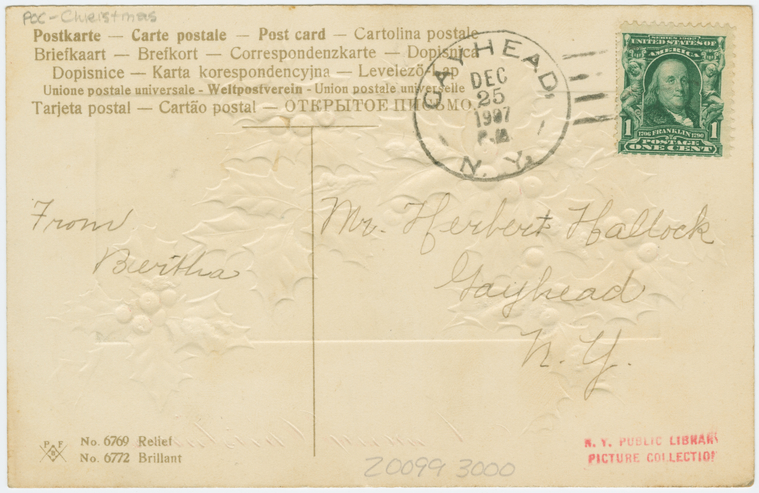 POC - Christmas
Postkarte — Carte postale — Post card — Cartolina postale
Briefkaart — Brefkort — Correspondenzkarte — Dopisnica
Dopisnice — Karta korespondencyjna — Levelező-Lap
Unione postale universale - Weltpostverein - Union postale universelle
Tarjeta postal — Cartão postal — ОТКРЫТОЕ ПИСЬМО.
GAYHEAD.
DEC
25
1907
P.M
N. Y.
SERIES 1902
UNITED STATES OF
AMERICA
1 1706 FRANKLIN 1790 1
POSTAGE
ONE CENT
From
Bertha
Mr. Herbert Hallock
Gayhead
N. Y.
P F B
No. 6769 Relief
No. 6772 Brillant
Z0099 3000
N. Y. PUBLIC LIBRARY
PICTURE COLLECTION